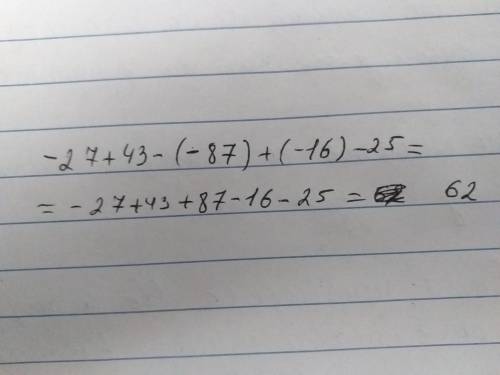 -27+43-(-87)+(-16)-25=
=-27+43+87-16-25= 62